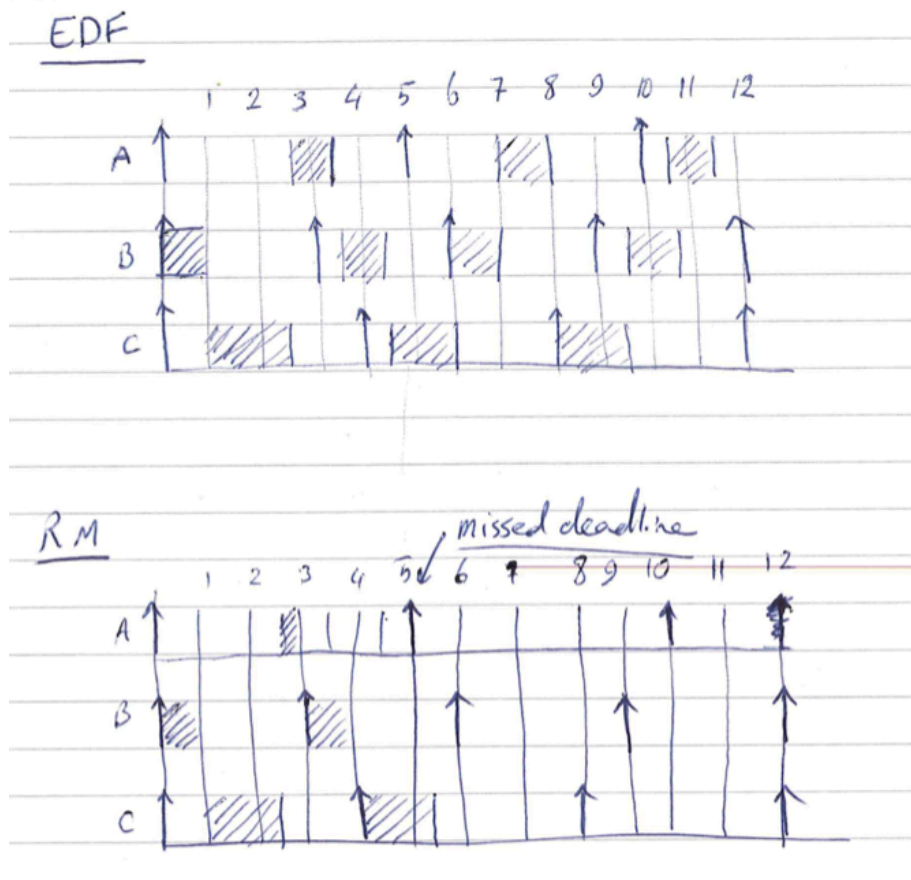 EDF
1 2 3 4 5 6 7 8 9 10 11 12
A
B
C
RM
missed deadline
1 2 3 4 5 6 7 8 9 10 11 12
A
B
C